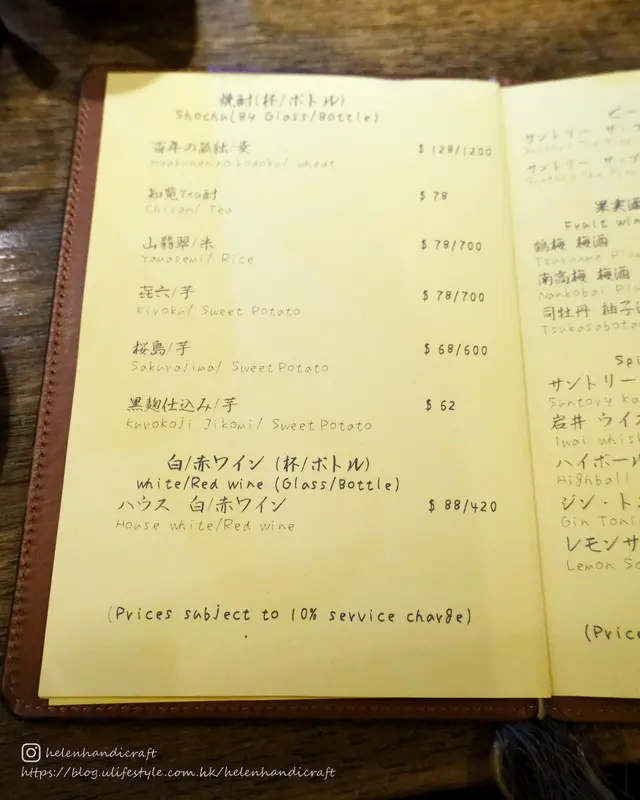 焼酎(杯/ボトル)
Shochu(By Glass/Bottle)
百年の孤独/麦 $ 128/1200
Hyakunen no kodoku/ wheat
知覧Tea酎 $ 78
Chiran/ Tea
山翡翠/米 $ 78/700
Yamasemi/ Rice
㐂六/芋 $ 78/700
Kiroku/ Sweet Potato
桜島/芋 $ 68/600
Sakurajima/ Sweet Potato
黒麹仕込み/芋 $ 62
Kurokoji Jikomi/ Sweet Potato
白/赤ワイン (杯/ボトル)
white/Red wine (Glass/Bottle)
ハウス 白/赤ワイン $ 88/420
House white/Red wine
(Prices subject to 10% service charge)
ビー
サントリー ザ・プ
サントリー ザ・プ
果実酒
Fruit win
鶴梅 梅酒
Tsuruume Plu
南高梅 梅酒
Nankobai Plu
司牡丹 柚子
Tsukasabota
Spi
サントリー
Suntory Ka
岩井 ウイス
Iwai whis
ハイボール
Highball
ジン・トニ
Gin Toni
レモンサ
Lemon So
(Price
helenhandicraft
https://blog.ulifestyle.com.hk/helenhandicraft